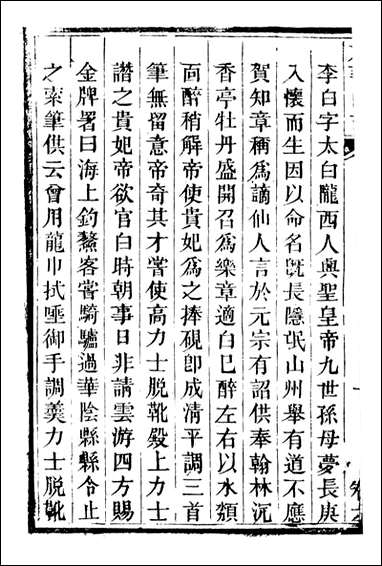 李白字太白隴西人興聖皇帝九世孫母夢長庚
入懷而生因以命名旣長隱岷山州舉有道不應
賀知章稱爲謫仙人言於元宗有詔供奉翰林沉
香亭牡丹盛開召爲樂章適白已醉左右以水頮
面醉稍解帝使貴妃爲之捧硯卽成清平調三首
筆無留意帝奇其才嘗使高力士脫靴殿上力士
譖之貴妃帝欲官白時朝事日非請雲游四方賜
金牌署曰海上釣鰲客嘗騎驢過華陰縣縣令止
之索筆供云曾用龍巾拭唾御手調羹力士脫靴